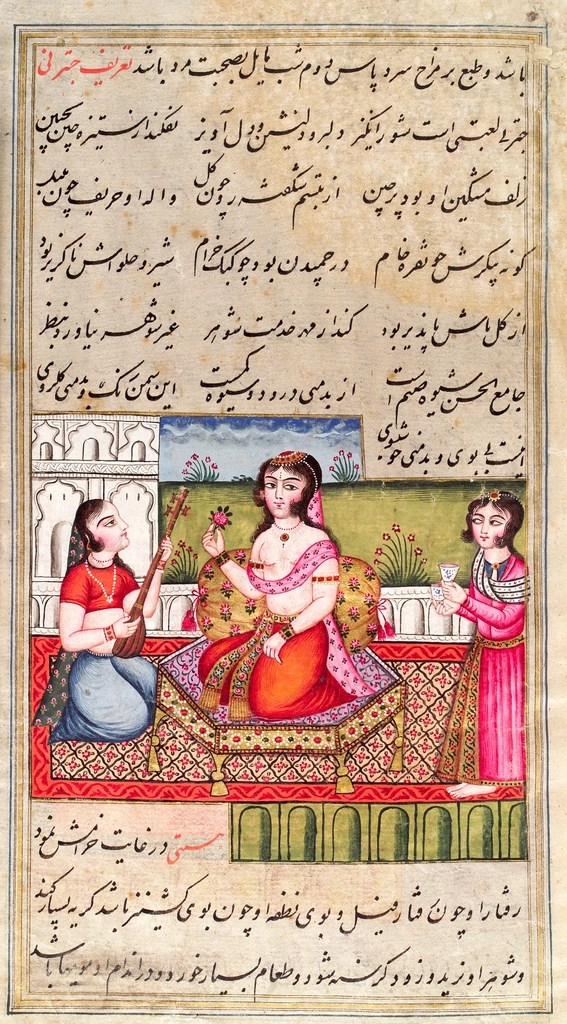 باشد و طبع بر مزاح سرد پاس دوم شب مایل بصحبت مرد باشد تعریف چترنی
چترنی لعبتی است شور انگیز دلبر و دلنشین و دل آویز نفکند از ستیزه چین بجبین
زلف مشکین او بود پر چین از تبسم شکفته رو چون گل واله او حریف چون بلبل
گونه پیکرش چو نقره خام در چمیدن بود چو کبک خرام شیر و حلواش ناگزیر بود
از گل و ماش ناپذیر بود کند از مهر خدمت شوهر غیر شوهر نیاورد بنظر
جامع الحسن شیوه صنم است از بدمنی درو دو شیوه کمست این سمن رنگ و بدمنی گلروی
اینست بی بوی و بدمنی خوشبوی
هستی در غایت خرامش نمود
رفتار او چون رفتار فیل و بوی نطفه او چون بوی گشنیز باشد گریه بسیار کند
و شوهر او نزید و زود گرسنه شود و طعام بسیار خورد و در اندام او مویها باشد